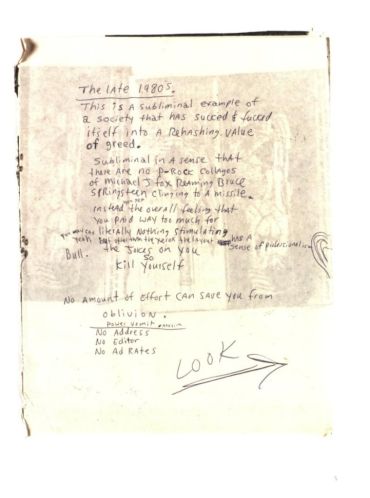 The late 1980s.
This is a subliminal example of
a society that has sucked & fucked
itself into a Rehashing value
of greed.
Subliminal in a sense that
there are no P-Rock Collages
of Michael J fox Reaming Bruce
Springsteen Clinging to a missile.
instead the overall feeling that
you paid way too much for
literally Nothing stimulating
you may say
yeah but the layout has a
sense of professionalism
Bull. the Jokes on you
so
Kill Yourself
No amount of Effort can save you from
oblivion.
power vomit
No Address
No Editor
No Ad Rates
LOOK